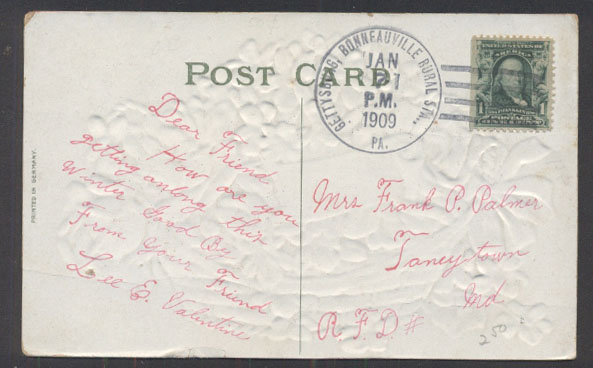 POST CARD
GETTYSBURG, BONNEAUVILLE RURAL STA.
JAN
P.M.
1909
PA.
1 1
POSTAGE
PRINTED IN GERMANY.
Dear Friend
How are you
getting anlong this
Winter Good By
From Your Friend
E. Valentine
Mrs Frank P. Palmer
Taneytown
Md
R. F. D. #
250